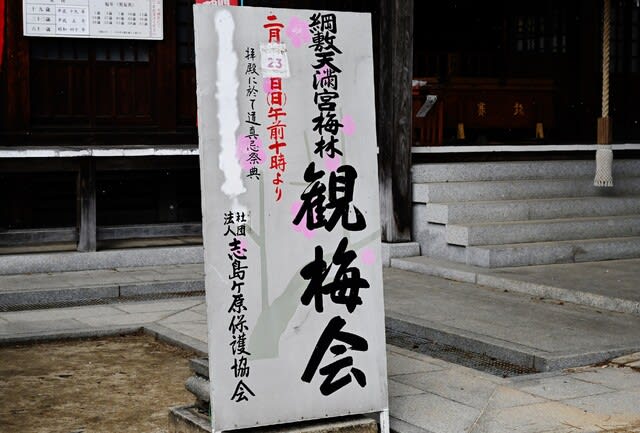 綱敷天満宮梅林
観梅会
二月23日(日)午前十時より
拝殿に於て道真忌祭典
社団
法人
志島ヶ原保護協会